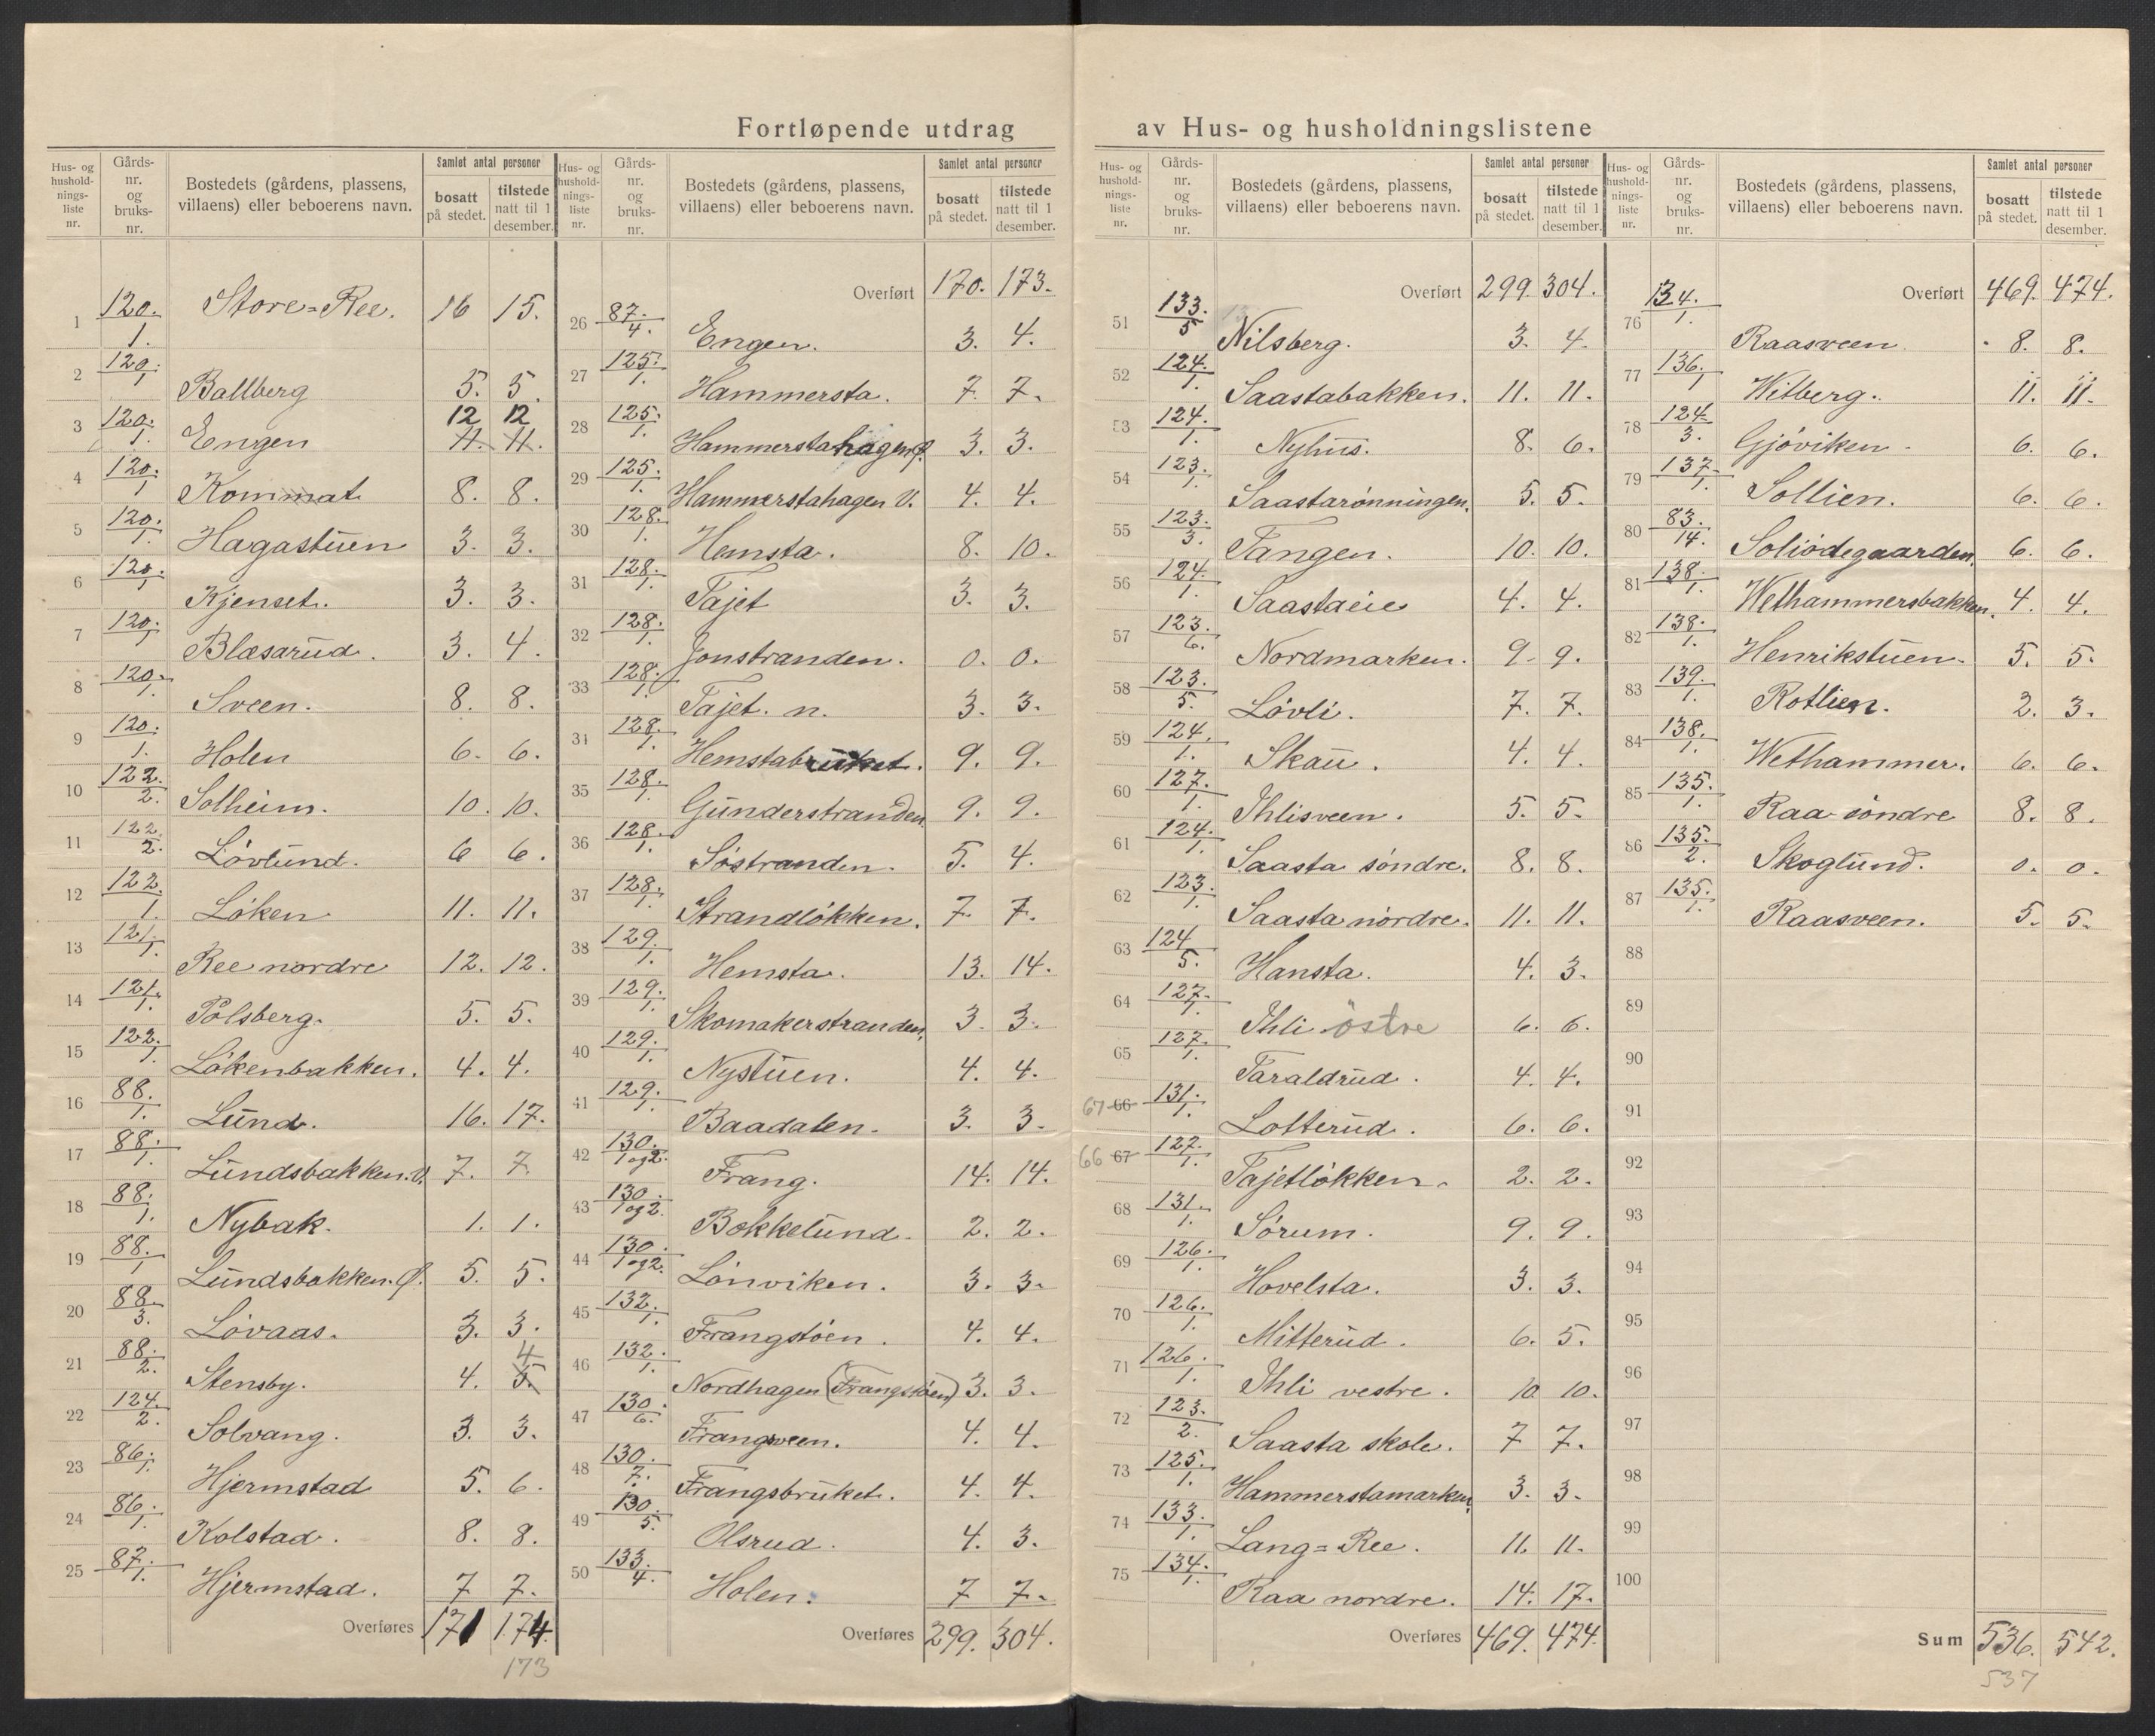 Fortløpende utdrag av Hus- og husholdningslistene
Hus- og hushold-nings-liste nr. | Gårds-nr. og bruks-nr. | Bostedets (gårdens, plassens, villaens) eller beboerens navn. | Samlet antal personer: bosatt på stedet. | tilstede natt til 1 desember.
1 120./1. Store=Ree. 16 15.
2 120./1 Ballberg 5. 5.
3 120./1. Engen 12 12 11. 11.
4 120./1 Kommat 8. 8.
5 120./1. Hagastuen 3. 3.
6 120./1 Kjenset. 3. 3.
7 120./1 Blæsarud. 3. 4.
8 120./1. Sveen. 8. 8.
9 120./1. Holen 6. 6.
10 122./2. Solheim. 10. 10.
11 122./2. Lövlund. 6 6.
12 122./1. Löken 11. 11.
13 121./1. Ree nordre 12. 12.
14 121./1. Pålsberg. 5. 5.
15 122./1. Lökenbakken. 4. 4.
16 88./1. Lund. 16. 17.
17 88./1. Lundsbakken. V. 7. 7.
18 88./1. Nybak. 1. 1.
19 88./1 Lundsbakken. Ø. 5. 5.
20 88./3. Lövaas. 3. 3.
21 88./2. Stensby. 4. 5. 4
22 124./2. Solvang. 3. 3.
23 86./1. Hjermstad 5. 6.
24 86./1. Kolstad. 8. 8.
25 87./1. Hjermstad. 7 7.
Overføres 171 174.
173
Hus- og hushold-nings-liste nr. | Gårds-nr. og bruks-nr. | Bostedets (gårdens, plassens, villaens) eller beboerens navn. | Samlet antal personer: bosatt på stedet. | tilstede natt til 1 desember.
Overført 170. 173.
26 87./4. Engen. 3. 4.
27 125./1. Hammersta. 7. 7.
28 125./1. Hammerstahagen Ø. 3. 3.
29 125./1. Hammerstahagen V. 4. 4.
30 128./1. Hemsta. 8. 10.
31 128./1. Tajet 3. 3.
32 128./1. Jonstranden. 0. 0.
33 128./1. Tajet. n. 3. 3.
34 128./1. Hemstabruket. 9. 9.
35 128./1. Gunderstranden. 9. 9.
36 128./1. Söstranden. 5. 4.
37 128./1. Strandlökken. 7. 7.
38 129./1. Hemsta. 13. 14.
39 129./1. Skomakerstranden. 3. 3.
40 129./1. Nystuen. 4. 4.
41 129./1. Baadalen. 3. 3.
42 130./1 og 2. Frang. 14. 14.
43 130./1 og 2. Bokkelund. 2. 2.
44 130./1 og 2. Lönviken. 3. 3.
45 132./1. Frangstöen. 4. 4.
46 132./1. Nordhagen (Frangstöen) 3. 3.
47 130./6. Frangsveen. 4. 4.
48 130./7. Frangsbruket. 4. 4.
49 130./5. Olsrud. 4. 3.
50 133./4. Holen. 7 7.
Overføres 299. 304.
Hus- og hushold-nings-liste nr. | Gårds-nr. og bruks-nr. | Bostedets (gårdens, plassens, villaens) eller beboerens navn. | Samlet antal personer: bosatt på stedet. | tilstede natt til 1 desember.
Overført 299. 304.
51 133./5 Nilsberg. 3. 4.
52 124./1. Saastabakken. 11. 11.
53 124./1. Nyhus. 8. 6.
54 123./1. Saastarønningen. 5. 5.
55 123./3. Tangen. 10. 10.
56 124./1. Saastaeie 4. 4.
57 123./6. Nordmarken. 9. 9.
58 123./5. Lövli. 7. 7.
59 124./1. Skau. 4. 4.
60 127./1. Ihlisveen. 5. 5.
61 124./1. Saasta söndre. 8. 8.
62 123./1. Saasta nordre. 11. 11.
63 124/5. Hansta. 4. 3.
64 127./1. Ihli östre 6. 6.
65 127./1. Taraldrud. 4. 4.
67 66 131./1. Lotterud. 6. 6.
66 67 127./1. Tajetlökken. 2. 2.
68 131./1. Sörum. 9. 9.
69 126./1. Hovelsta. 3. 3.
70 126./1. Mitterud. 6. 5.
71 126./1. Ihli vestre. 10 10.
72 123./2. Saasta skole. 7 7.
73 125./1. Hammerstamarken. 3. 3.
74 133./1. Lang=Ree. 11. 11.
75 134./1. Raa nordre. 14. 17.
Overføres 469. 474.
Hus- og hushold-nings-liste nr. | Gårds-nr. og bruks-nr. | Bostedets (gårdens, plassens, villaens) eller beboerens navn. | Samlet antal personer: bosatt på stedet. | tilstede natt til 1 desember.
Overført 469. 474.
76 134./1. Raasveen 8. 8.
77 136./1 Witberg. 11. 11.
78 124/3. Gjöviken 6. 6.
79 137./1. Sollien. 6. 6.
80 83./14. Soliödegaarden. 6. 6.
81 138./1. Wethammersbakken. 4. 4.
82 138./1. Henrikstuen. 5. 5.
83 139./1. Rotlien. 2. 3.
84 138./1. Wethammer. 6. 6.
85 135./1. Raa söndre 8. 8.
86 135./2. Skoglund. 0. 0.
87 135./1. Raasveen. 5. 5.
88
89
90
91
92
93
94
95
96
97
98
99
100
Sum 536. 542.
537